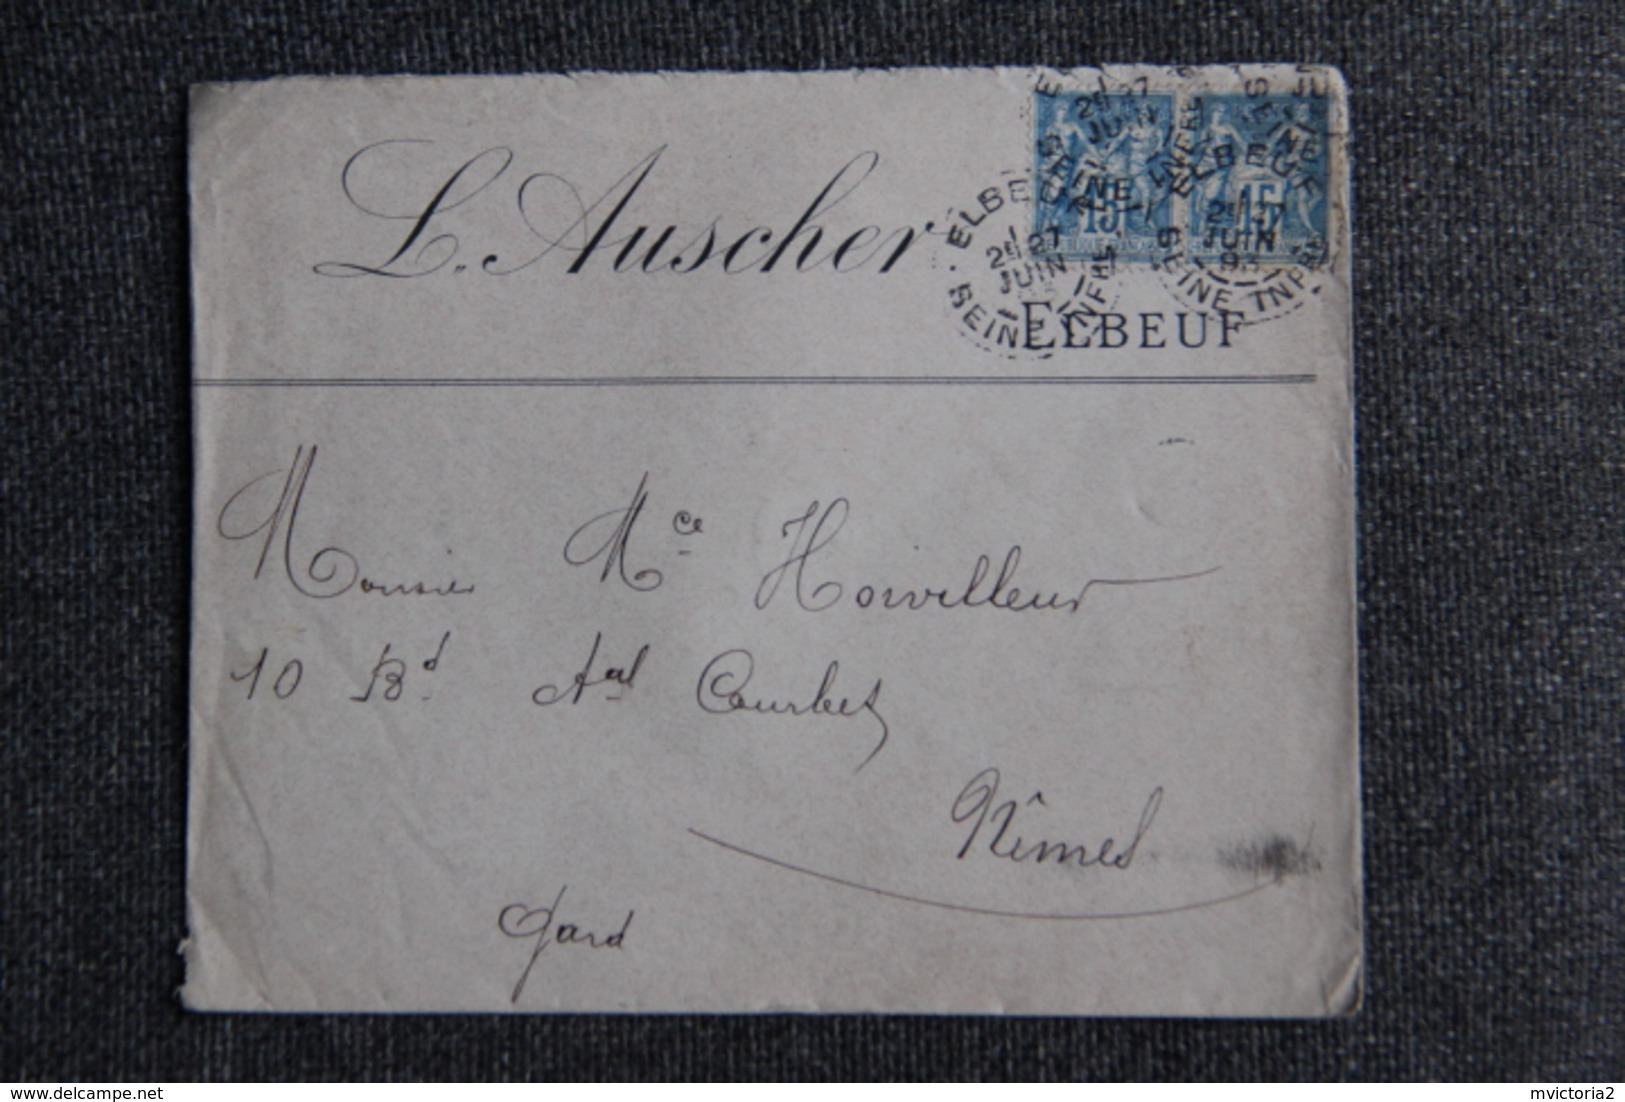 L. Auscher
ELBEUF
15
15
ELBEUF
1
2E 27
JUIN
SEINE INFRE
ELBEUF
JUIN
SEINE INFRE
JUIN
SEINE INFRE
Monsieur Mce Horvilleur
10 Bd Aal Courbet
Nîmes
Gard
delcampe.net
mvictoria2